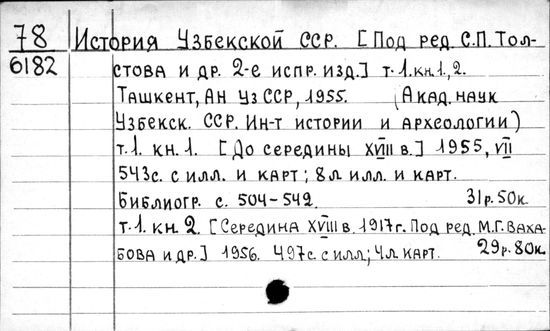 78 История Узбекской ССР. [Под ред. С.П. Тол-
6182 стова и др. 2-е испр. изд.] т.1. кн.1., 2.
Ташкент, Ан Уз ССР, 1955. (Акад. наук
Узбекск. ССР. Ин-т истории и археологии)
т.1. кн.1. [До середины XVIII в.] 1955, VII
543с. с илл. и карт; 8л илл. и карт.
библиогр. с. 504-542. 31р.50к.
т.1. кн.2. [Середина XVIII в. 1917г. Под ред. М.Г. Ваха-
бова и др.] 1956. 497с. с илл; 4л карт. 29р.80к.